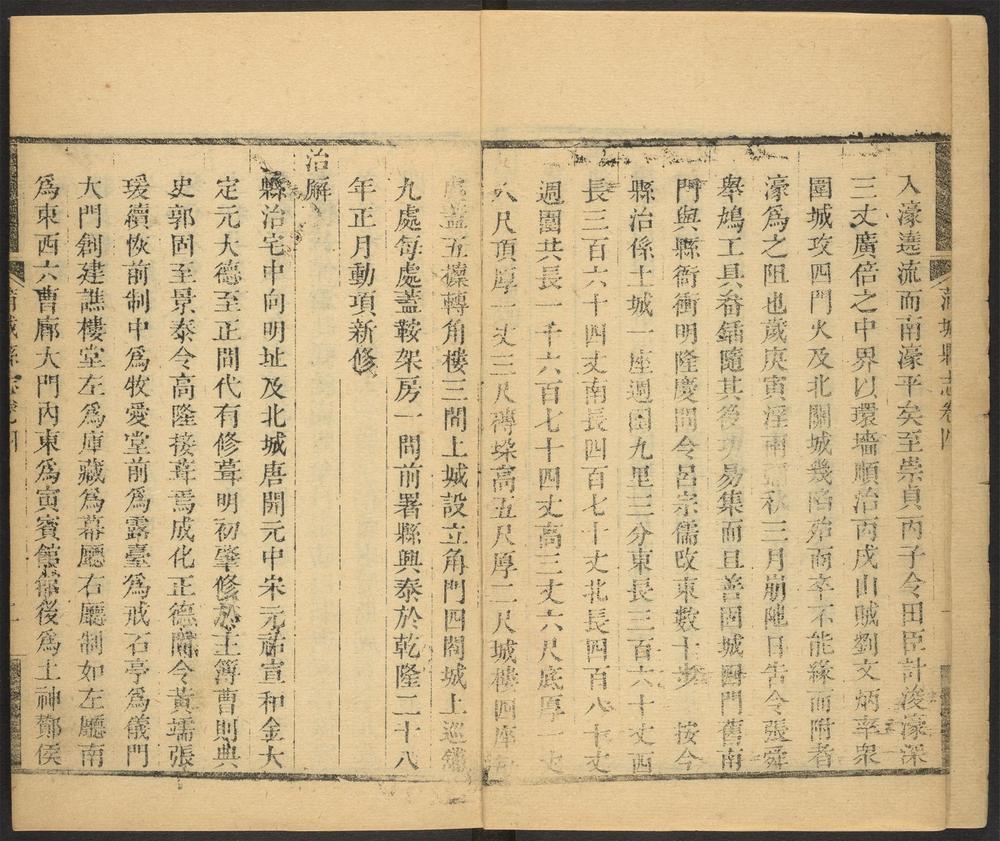 蒲城縣志卷四
入濠遶流而南濠平矣至崇貞丙子令田臣計浚濠深
三丈廣倍之中界以環墻順治丙戌山賊劉文炳率衆
圍城攻四門火及北關城幾陷殆而卒不能緣而附者
濠爲之阻也歲庚寅淫雨秋三月崩阤日告令張舜
舉鳩工具畚鍤隨其後功易集而且善固城四門舊南
門與縣衙衝明隆慶間令呂宗儒改東數十步 按今
縣治係土城一座週圍九里三分東長三百六十丈西
長三百六十四丈南長四百七十丈北長四百八十丈
週圍共長一千六百七十四丈高三丈六尺底厚 七
八尺頂厚一丈三尺磚垛高五尺厚二尺城樓四座
蓋五檁轉角樓三間上城設立角門四閣城上巡
九處每處蓋鞍架房一間前署縣興泰於乾隆二十八
年正月動項新修
治廨
縣治宅中向明址及北城唐開元中宋元祐宣和金大
定元大德至正間代有修葺明初肇修於主簿曹則典
史郭固至景泰令高隆接葺焉成化正德間令黃壖張
瑗續恢前制中爲牧愛堂前爲露臺爲戒石亭爲儀門
大門創建譙樓堂左爲庫藏爲幕廳右廳制如左廳南
爲東西六曹廊大門內東爲寅賓館館後爲土神酇侯